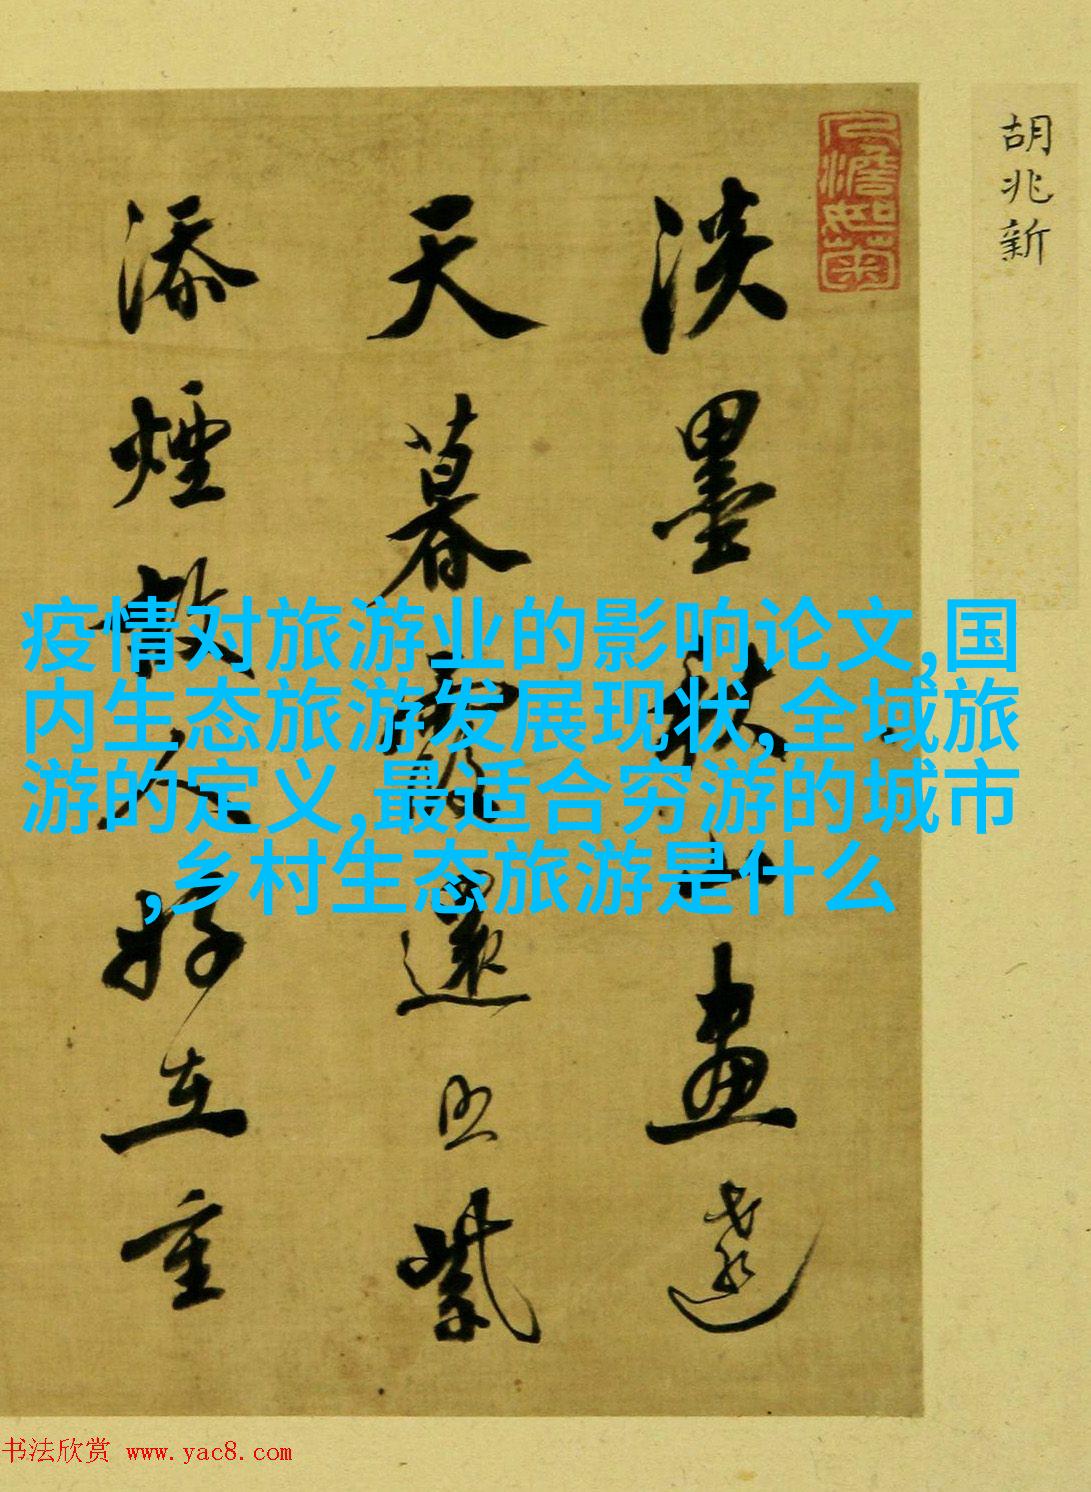 胡兆新
人澹如菊
淡墨秋山畫遠
天暮霞還照紫
添煙故人好在重
疫情对旅游业的影响论文,国
内生态旅游发展现状,全域旅
游的定义,最适合穷游的城市
,乡村生态旅游是什么
书法欣赏 www.yac8.com